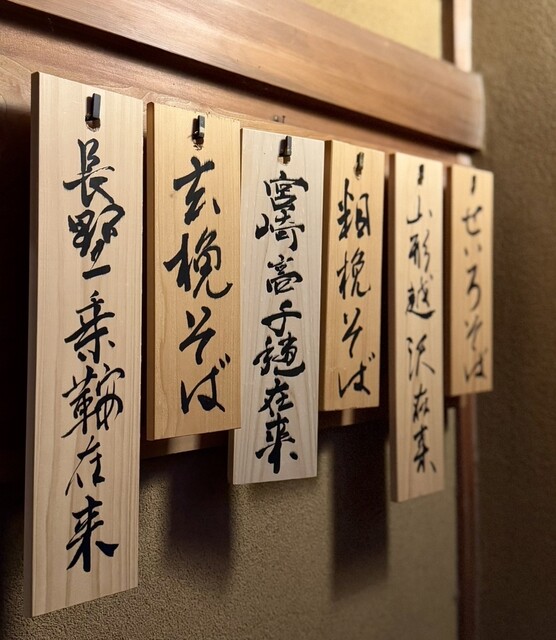 せいろそば
山形越沢在来
粗挽そば
宮崎高千穂在来
玄挽そば
長野乗鞍在来